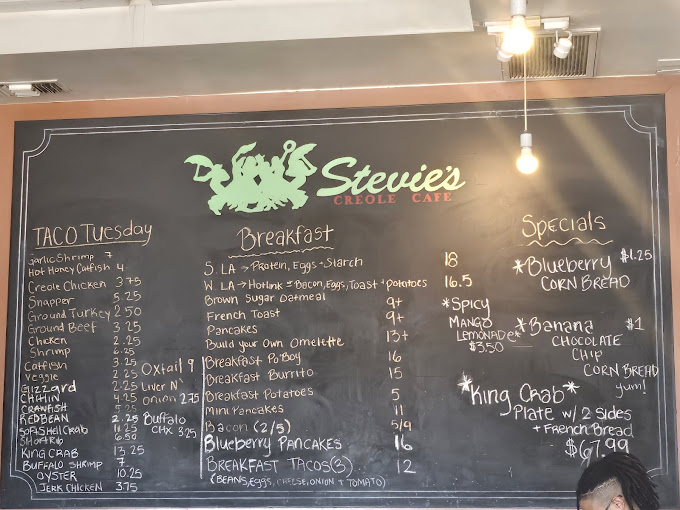 Stevie's
CREOLE CAFE
TACO Tuesday
Garlic Shrimp 7
Hot Honey Catfish 4
Creole Chicken 3.75
Snapper 5.25
Ground Turkey 2.50
Ground Beef 3.25
Chicken 2.25
Shrimp 6.25
Catfish 3.25
Veggie 2.25
Gizzard 2.25
CHITLIN 4.25
CRAWFISH 5.25
REDBEAN 2.25
SOFTSHELL CRAB 11.25
SHORTRIB 6.50
KING CRAB 13.25
BUFFALO SHRIMP 7
OYSTER 10.25
JERK CHICKEN 3.75
Oxtail 9
Liver N'
onion 2.75
Buffalo
CHX 3.25
Breakfast
S. LA → Protein, Eggs + Starch 18
W. LA → Hotlink = Bacon, Eggs, Toast + Potatoes 16.5
Brown Sugar Oatmeal 9+
French Toast 9+
Pancakes
Build your own Omelette 13+
Breakfast Po'Boy 16
Breakfast Burrito 15
Breakfast Potatoes 5
Mini Pancakes 11
Bacon (2/5) 5/9
Blueberry PANCAKES 16
BREAKFAST TACOS (3) 12
(BEANS, EGGS, CHEESE, ONION + TOMATO)
*Spicy
MANGO
LEMONADE*
$3.50
Specials
*Blueberry $1.25
CORN BREAD
*Banana $1
CHOCOLATE
CHIP
CORN BREAD
yum!
*King Crab*
Plate w/ 2 sides
+ French Bread
$67.99